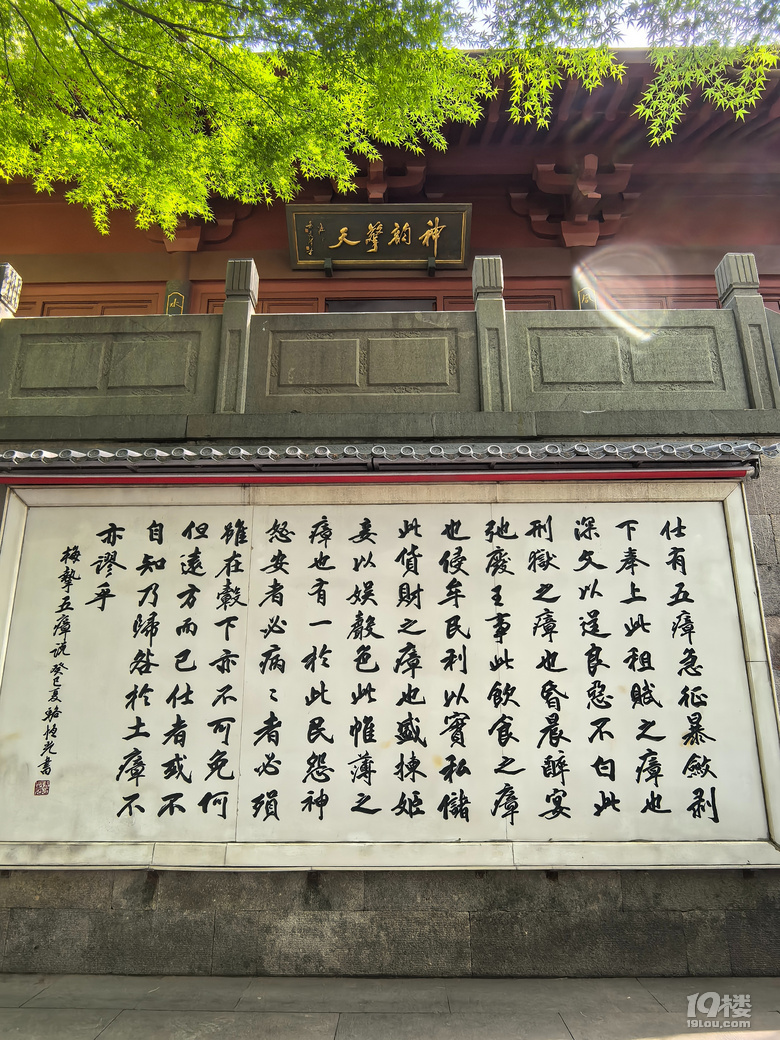 神韵擎天
仕有五瘴急征暴斂剥
下奉上此租賦之瘴也
深文以逞良惡不白此
刑獄之瘴也昏晨醉宴
弛廢王事此飲食之瘴
也侵牟民利以實私儲
此貨財之瘴也盛揀姬
妾以娱聲色此帷薄之
瘴也有一於此民怨神
怒安者必病〻者必殞
雖在轂下亦不可免何
但遠方而已仕者或不
自知乃歸咎於土瘴不
亦謬乎
梅摯五瘴说 癸巳夏駱恒光書
19楼
19lou.com